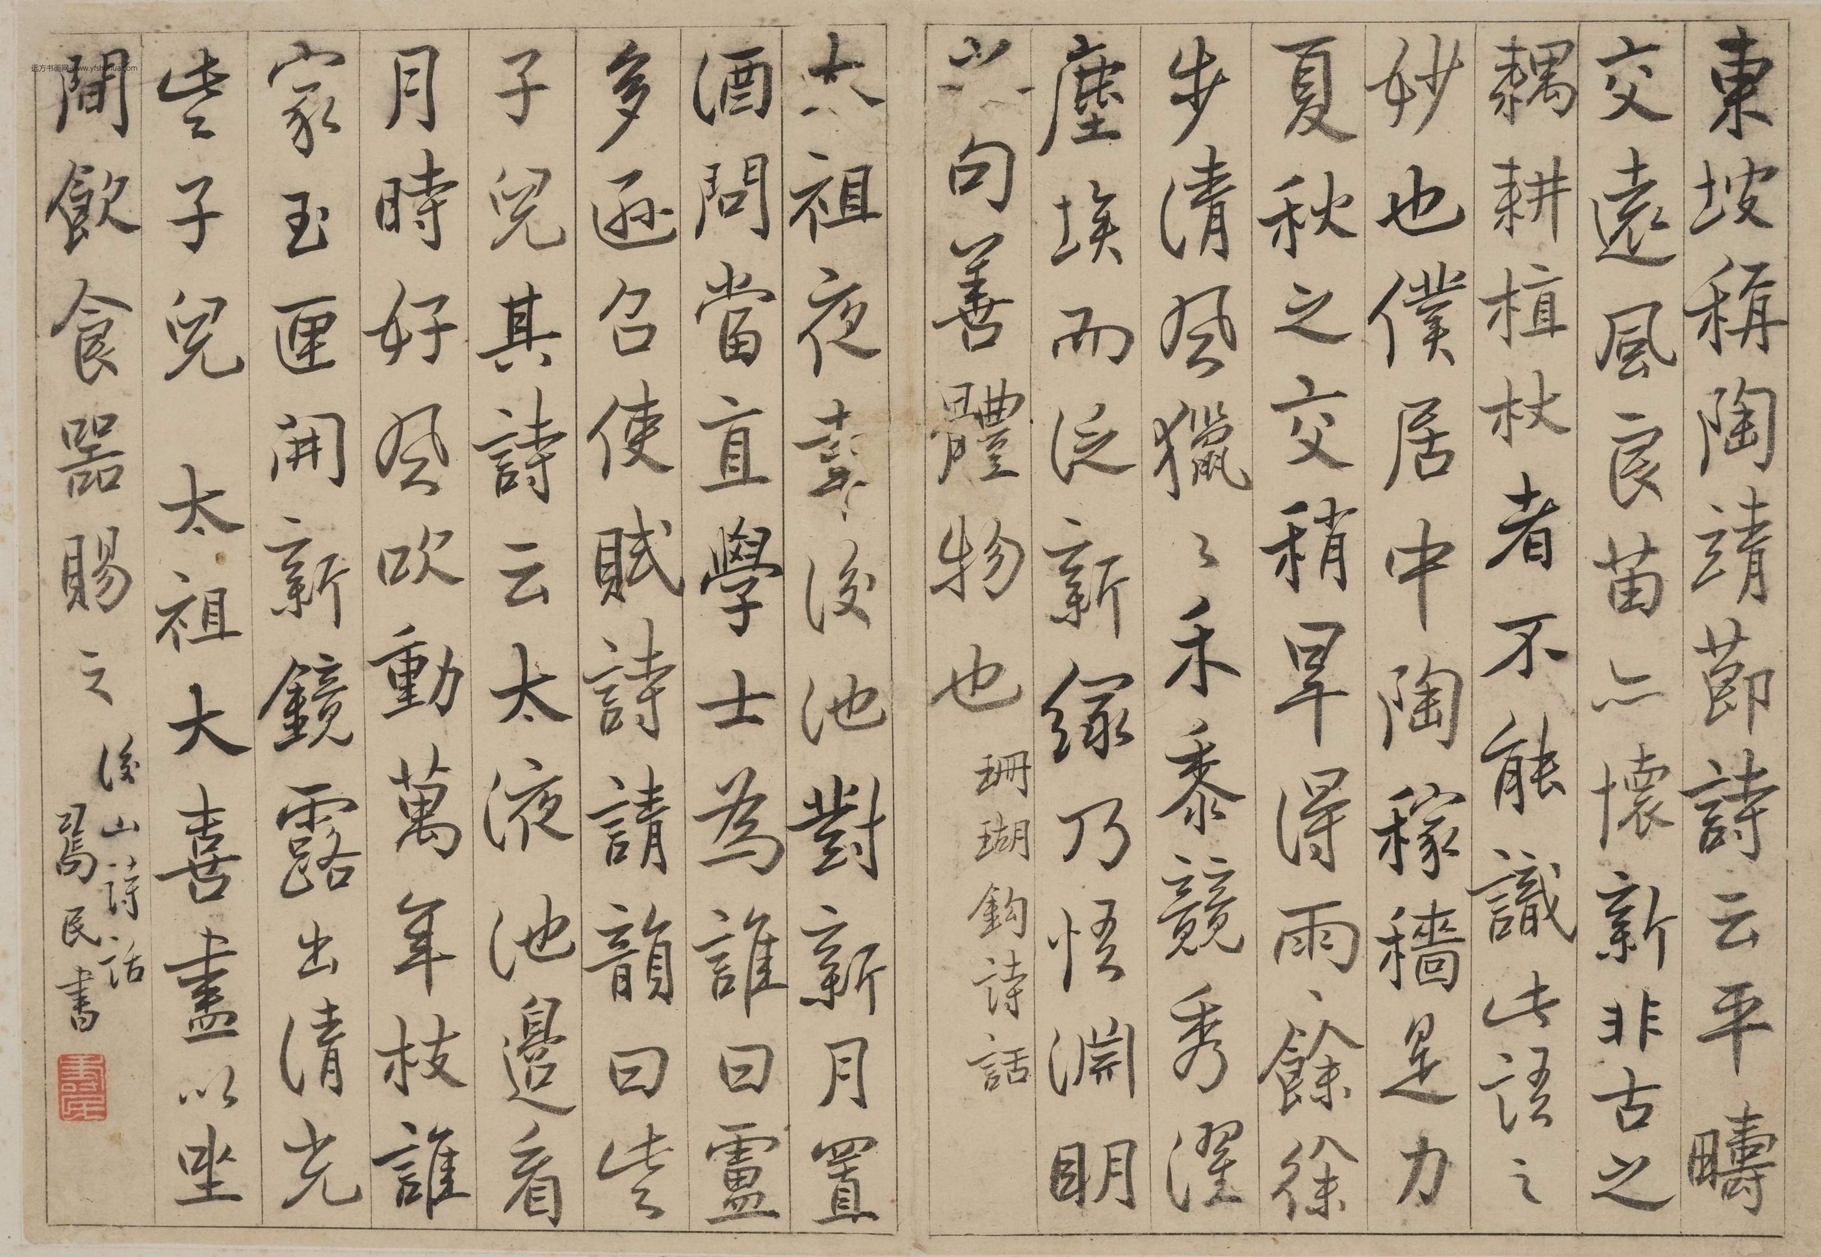 東坡稱陶靖節詩云平疇
交遠風良苗亦懷新非古之
耦耕植杖者不能識此語之
妙也僕居中陶稼穡是力
夏秋之交稍旱得雨〻餘徐
步清風獵〻禾黍競秀濯
塵埃而泛新綠乃悟淵明
此句善體物也
珊瑚鈎詩話
太祖夜幸後池對新月置
酒問當直學士為誰曰盧
多遜召使賦詩請韻曰些
子兒其詩云太液池邊看
月時好風吹動萬年枝誰
家玉匣開新鏡露出清光
些子兒 太祖大喜盡以坐
間飲食器賜之
後山詩話
民書
远方书画网 www.yfshuhua.com